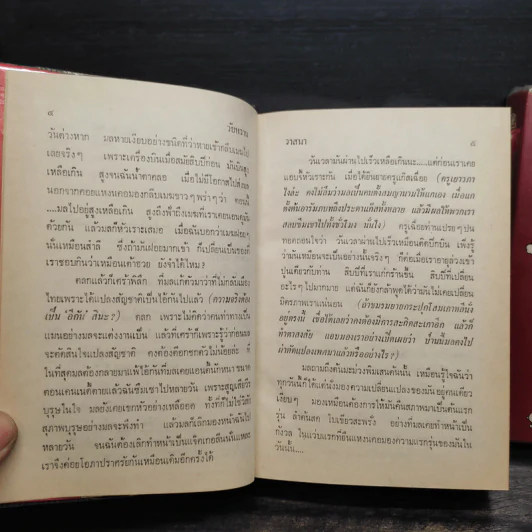 ๔
วัยหวาน
วันต่างหาก มลหายเงียบอย่างชนิดที่ว่าหายเข้ากลีบเมฆไป
เลยจริงๆ เพราะเครื่องบินเมื่อสมัยสิบปีก่อน มันบินสูง
เหลือเกิน สูงจนฉันน้ำตาคลอ เมื่อไม่มีโอกาสไปส่ง
นอกจากคอยแหงนคอมองกลีบเมฆขาวๆพร่าๆว่า คงมี
....มลไปอยู่สูงเหลือเกิน สูงถึงฟ้าถึงเมฆที่เราเคยนอนดูมัน
ด้วยกัน แล้วมลก็หัวเราะเสมอ เมื่อฉันบอกว่าเมฆฝรั่ง
นั่นเหมือนสำลี ซึ่งถ้ากินฝอยมากเข้า ก็เปลี่ยนเป็นรองที่
เราชอบกินว่าเหมือนเต้าฮวย ยังจำได้ไหม?
ตลกแล้วก็คร้าพิลึก ที่มลแก้ความว่าที่ไม่กลับเมือง
ไทยเพราะได้แปลงสัญชาติเป็นไอ้กันไปแล้ว
ตลก เพราะไม่คิดว่าคนที่ทำท่าเป็น
แม่นอย่างมลจะแต่งงานเป็น แล้วที่คร้าก็เพราะรู้ว่าก่อนมล
จะตัดสินใจแปลงสัญชาติ คงต้องคิดชกตัวไม่น้อยล่ะ ที่
ในที่สุดมลต้องกลายมาแพ้ไอ้กันที่มลเคยแอนตี้นักหนา ขนาด
คอนแคนนคี้ตายแล้วฉันซึมเซาไปหลายวัน เพราะสูญเสียวีร
บุรุษในใจ มลยังเคยเขกหัวอย่างเหลืออด ทั้งที่ก็ไม่ใช่วิสัย
สุภาพบุรุษอย่างมลจะพึงทำ แล้วมลก็เลิกมองหน้าฉันไป
หลายวัน จนฉันต้องเลิกทำหน้าเป็นแจ็คเกอลีนนั่นแหละ
เราจึงค่อยโอภาปราศรัยกันเหมือนเดิมอีกครั้งได้
วาสนา
๕
วันเวลามันผ่านไปเร็วเหลือเกินนะ....แต่ก่อนเราเคย
แอบขี้หัวเราะกัน เมื่อได้ยินยายครูแก้ลเฉื่อย (ครูเยาวภา
ไงล่ะ คงไม่ลืมว่ามลเป็นคนตั้งสมญานามให้แกเอง เมื่อแก
ตั้งต้นอารัมภบทถึงประดานกีลทั้งหลาย แล้วมีผลให้พวกเรา
สอบซ่อมเขาไปทั้งชั่วโมง นั่นไง) ครูเฉื่อยท่านแปรยๆปน
ทอดถอนใจว่า วันเวลาผ่านไปเร็วเหมือนคิดปีกบิน เพิ่งรู้
ว่ามันเหมือนจะเป็นอย่างนั้นจริงๆ ก็ต่อเมื่อเราอายุล่วงเข้า
ปูนเดียวกับท่าน สิบปีที่เราแก่กร้านขึ้น สิบปีที่เปลี่ยน
อะไรๆไปมากมาย แต่ฉันก็ยังกล้าพูดได้ว่ามันไม่เคยเปลี่ยน
มิตรภาพเราแน่นอน (ถ้าขมรมยายกระปุกโลมเกาหลีนั่ง
อยู่ตรงนี้ เชื่อได้เลยว่าคงต้องมีการสะกิดสะเกาอีก แล้วก็
ทำตาสงสัย แอบมองเราอย่างเบื่อเผยว่า ป่านนี้มลคงไป
ผ่าตัดแปลงเพศมาแล้วหรืออย่างไร?)
มลถามถึงต้นมะม่วงพิมเสนต้นนั้น เหมือนรู้ใจฉันว่า
ทุกวันก็ได้แต่นั่งมองความเปลี่ยนแปลงของมันอยู่คนเดียว
เงียบๆ มองเหมือนต้องการให้มันคืนสภาพมาเป็นต้นแรก
รุ่น ลำต้นสด ใบเขียวสะพรั่ง อย่างที่มลเคยทำหน้าเป็น
กังวล ในแว่บแรกที่ยืนแหงนคอมองความแรกรุ่นของมันใน
วันนั้น....